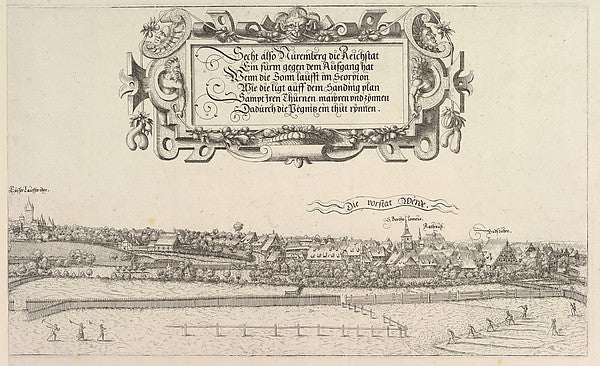 Secht also Nüremberg die Reichstat
Ein fürm gegen dem Aufgang hat
Wenn die Sonn laufft im Scorpion
Wie die ligt auff dem Sanding plan
Sampt Iren Thürnen mauren vnd zinnen
Dadürch die Pegnitz ein thüt rynnen.
Die vorstat Werde.
S. Bartholomeus.